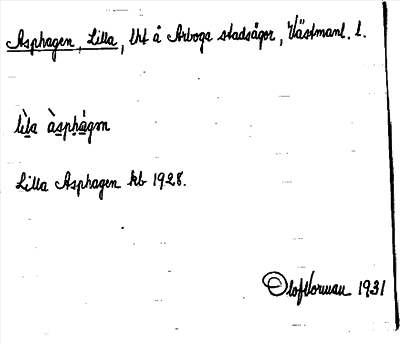 Asphagen, Lilla, lht å Arboga stadsägor, Västmanl. l.
lìla àsphágɷn
Lilla Asphagen kb 1928.
Olof Norman 1931